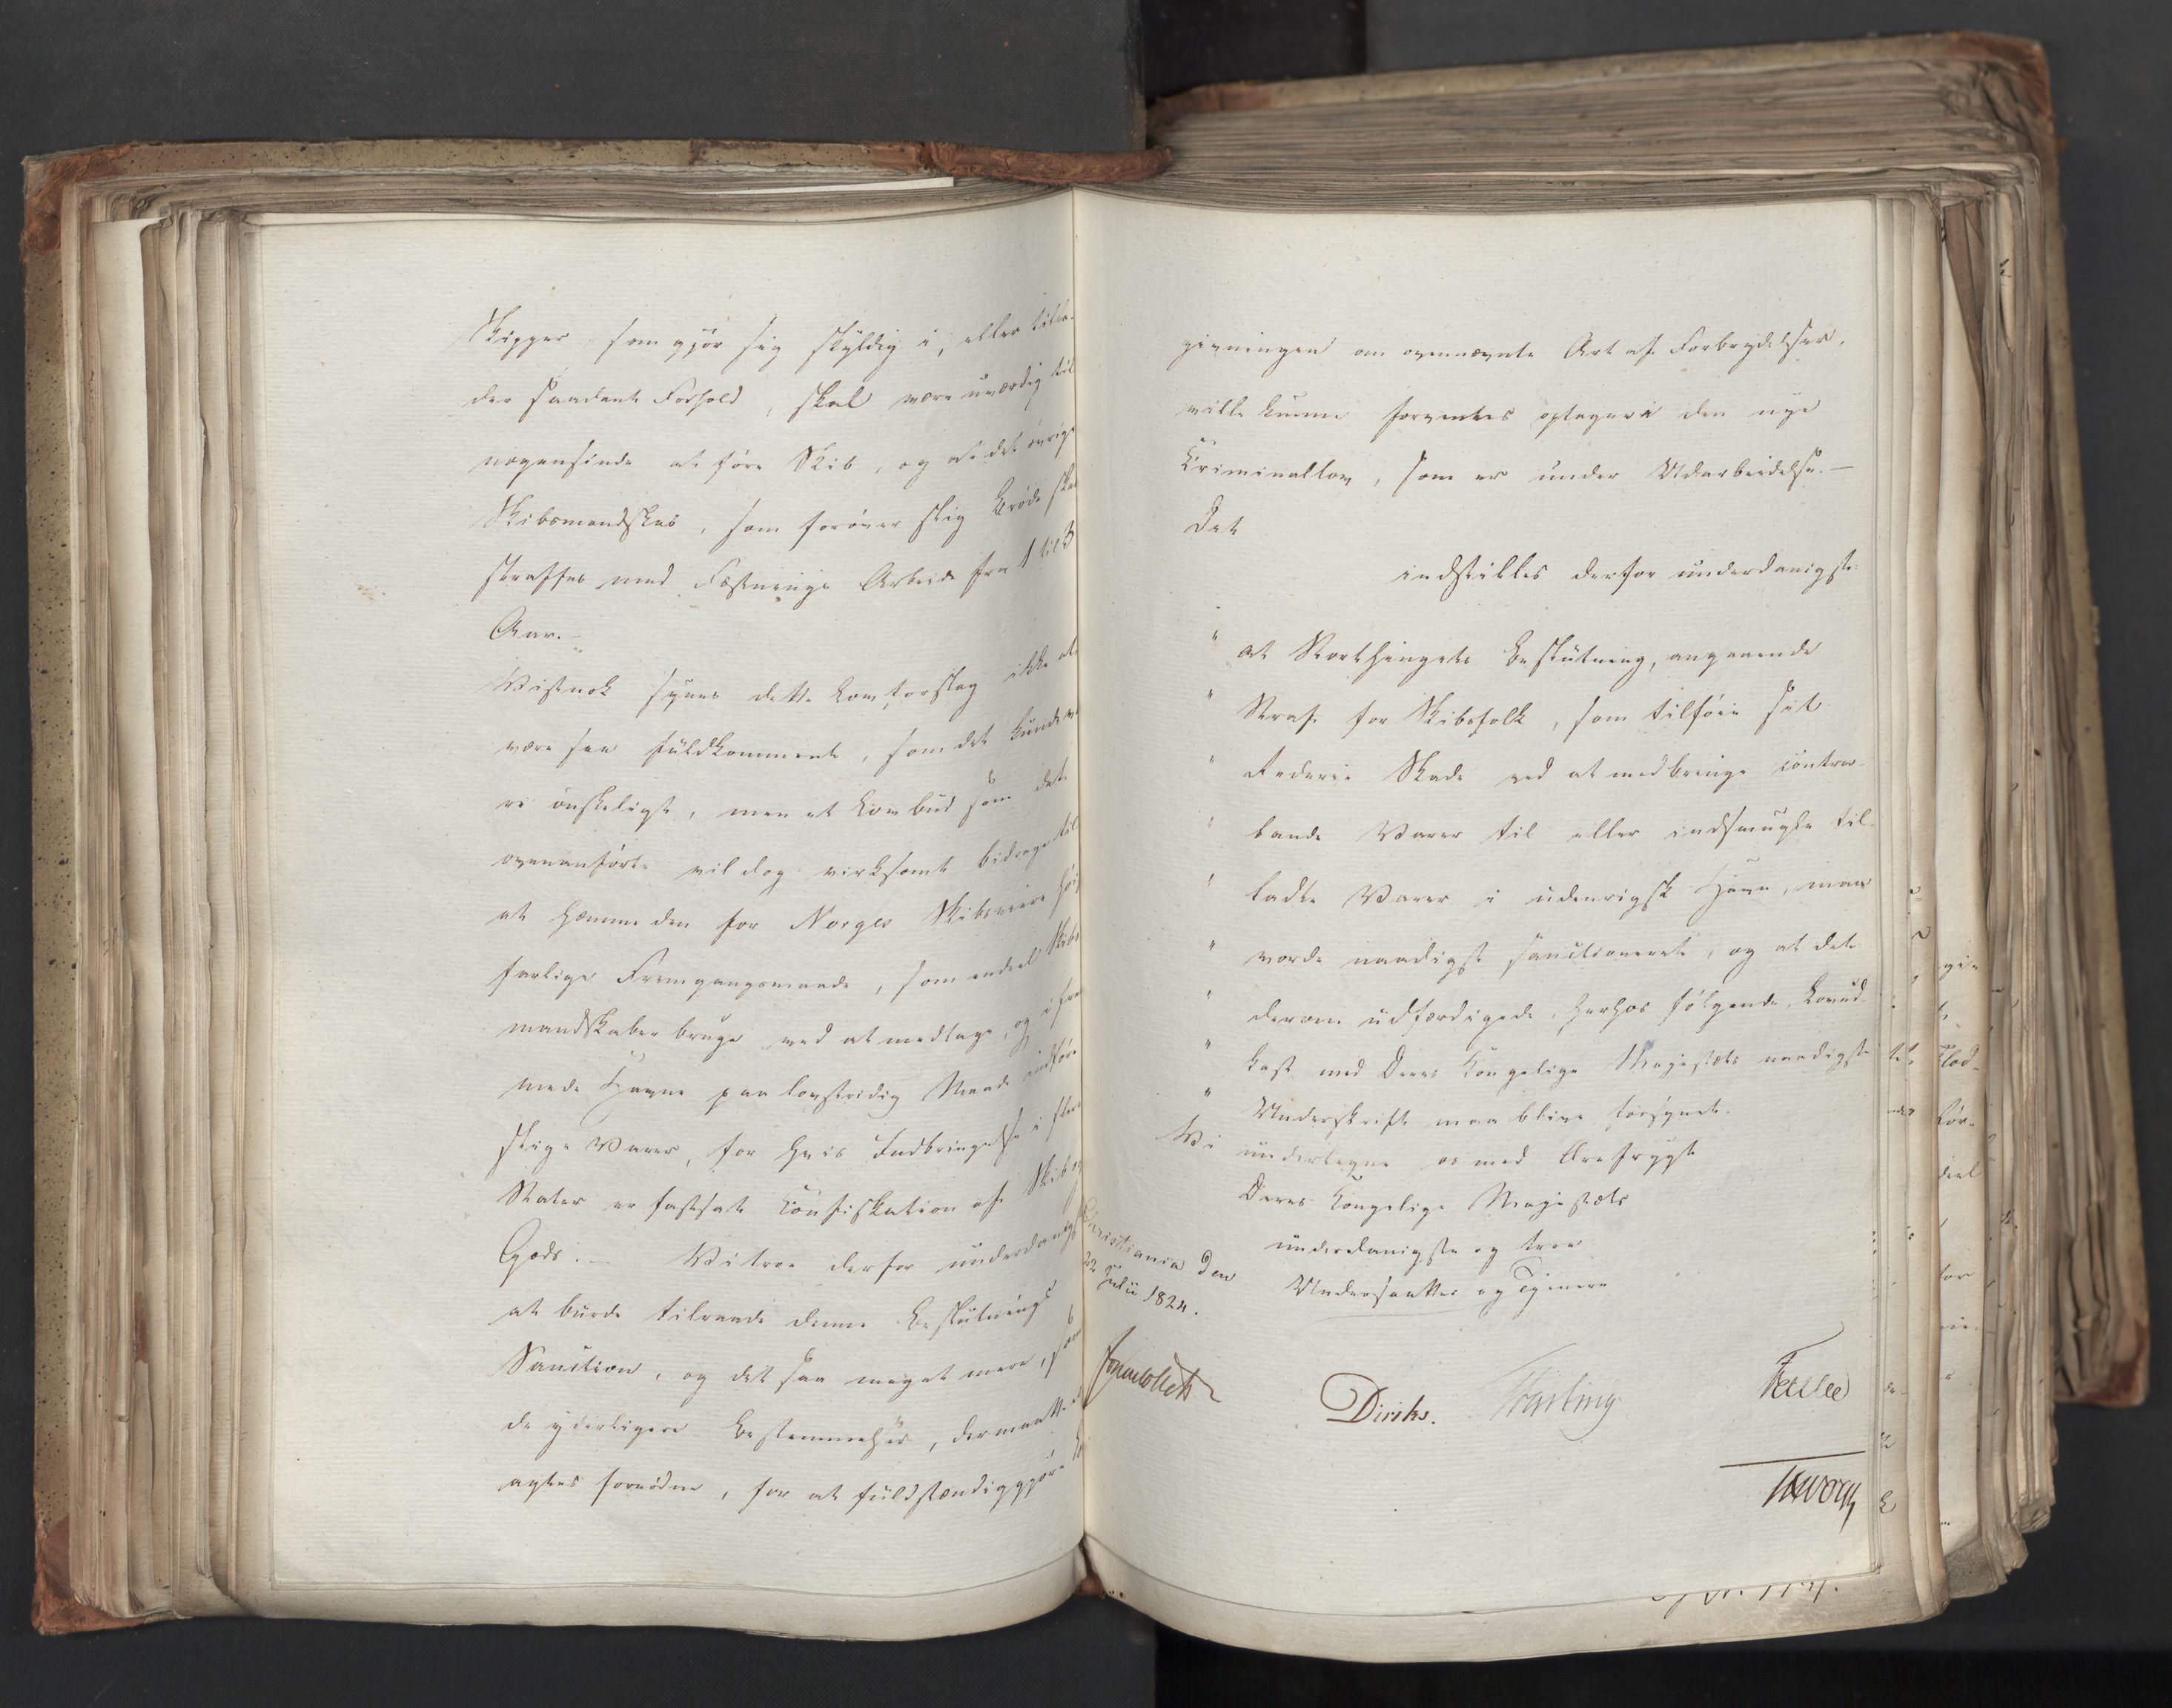 Skipper som gjør sig skyldig i, eller tilla-
der saadant Forhold, skal være uværdig til
nogensinde at føre Skib, og at det øvrige
Skibsmandskab, som forøver slig Brøde skal
straffes med Fæstnings Arbeide fra 1 til 3
Aar.-
Vistnok synes dette Lovforslag ikke at
være saa fuldkomment, som det kunde væ
re ønskeligt, men et Lovbud som det
ovenanførte vil dog virksomt bidrage til
at hæmme den for Norges Skibsreiere høist
farlige Fremgangsmaade, som endeel Skibs
mandskaber bruge ved at medtage, og i frem
mede Havne paa lovstridig Maade indføre
slige Varer, for hvis Indbringelse i flere
Stater er fastsat Confiskation af Skib og
Gods.- Vi troe derfor underdanigst
at burde tilraade denne Beslutnings
Sanction, og det saa meget mere, som
de yderligere Bestemmelser, der maatte
agtes fornødne, for at fuldstændiggjøre
givningen om ovennævnte Art af Forbrydelser,
ville kunne forventes optagne i den nye
Criminallov, som er under Udarbeidelse.-
Det
indstilles derfor underdanigst:
" at Storthingets Beslutning, angaaende
" Straf for Skibsfolk, som tilføie sit
" Rederie Skade ved at medbringe contra-
" bande Varer til eller indsmugle til-
" ladte Varer i udenrigsk Havn, maa
" vorde naadigst sanctioneret, og at det
" derom udfærdigede, herhos følgende, Lovud-
" kast med Deres Kongelige Majestæts naadigste
" Underskrift maa blive forsynet.
Vi undertegne os med Ærefrygt
Deres Kongelige Majestæts
underdanigste og troe
Undersaatter og Tjenere
Christiania den
22 Julii 1824.
Jonas Collett
Diriks.
Fasting